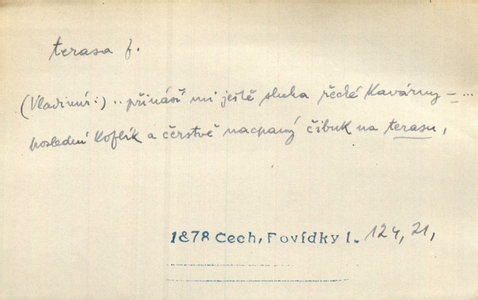 terasa f.
(Vladimír:) .. přináší mi ještě sluha řecké kavárny – ...
poslední koflík a čerstvě nacpaný čibuk na terasu,
1878 Cech, Povídky I. 124, 21,